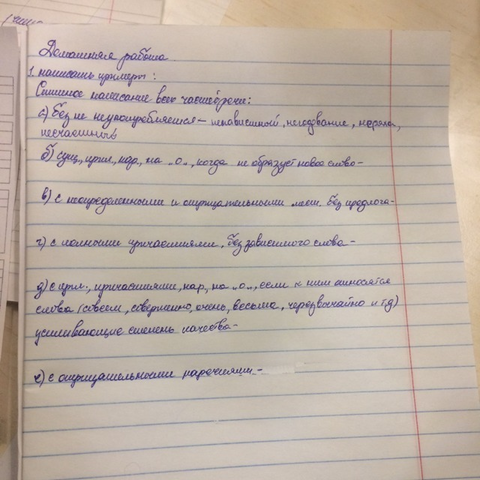 Домашняя работа
1. написать примеры:
Слитное написание всех частей речи:
а) Без не не употребляется – ненавистный, негодование,
несчастный
б) сущ, прил, нар, на „о„, когда не образует новое слово-
в) с неопределенными и отрицательными мест. без предлога-
г) с полными причастиями, без зависимого слова-
д) с прил., причастиями, нар, на „о„, если к ним относятся
слова (совсем, совершенно, очень, весьма, чрезвычайно и т.д)
усиливающие степень качества-
е) с отрицательными наречиями-